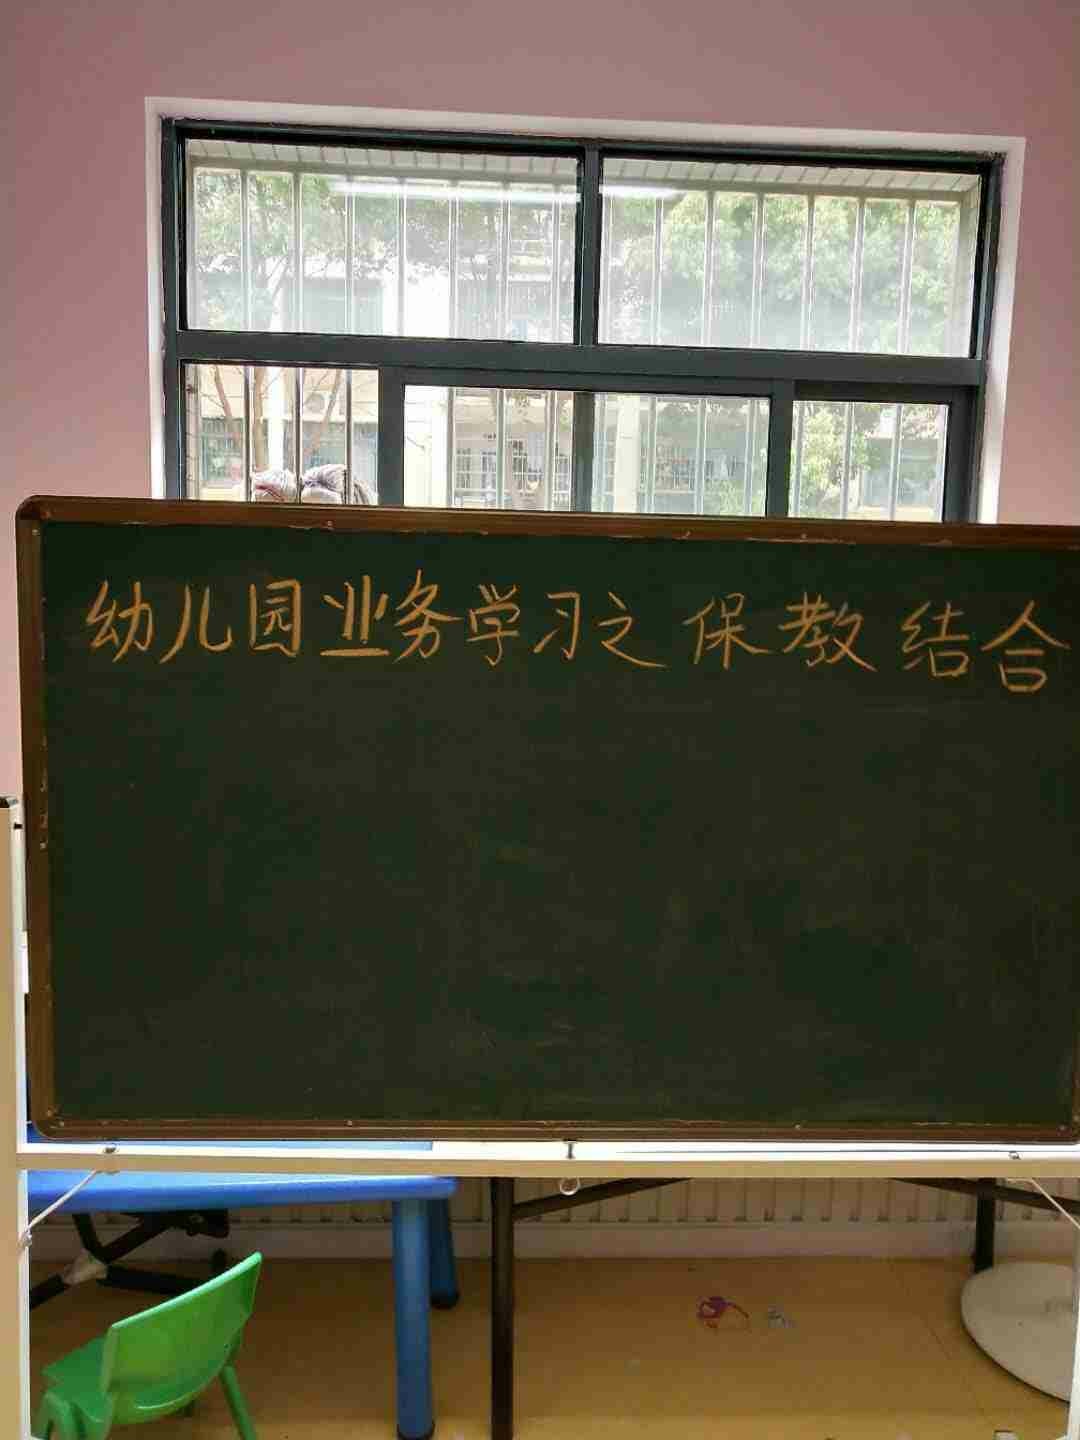 幼儿园业务学习之保教结合